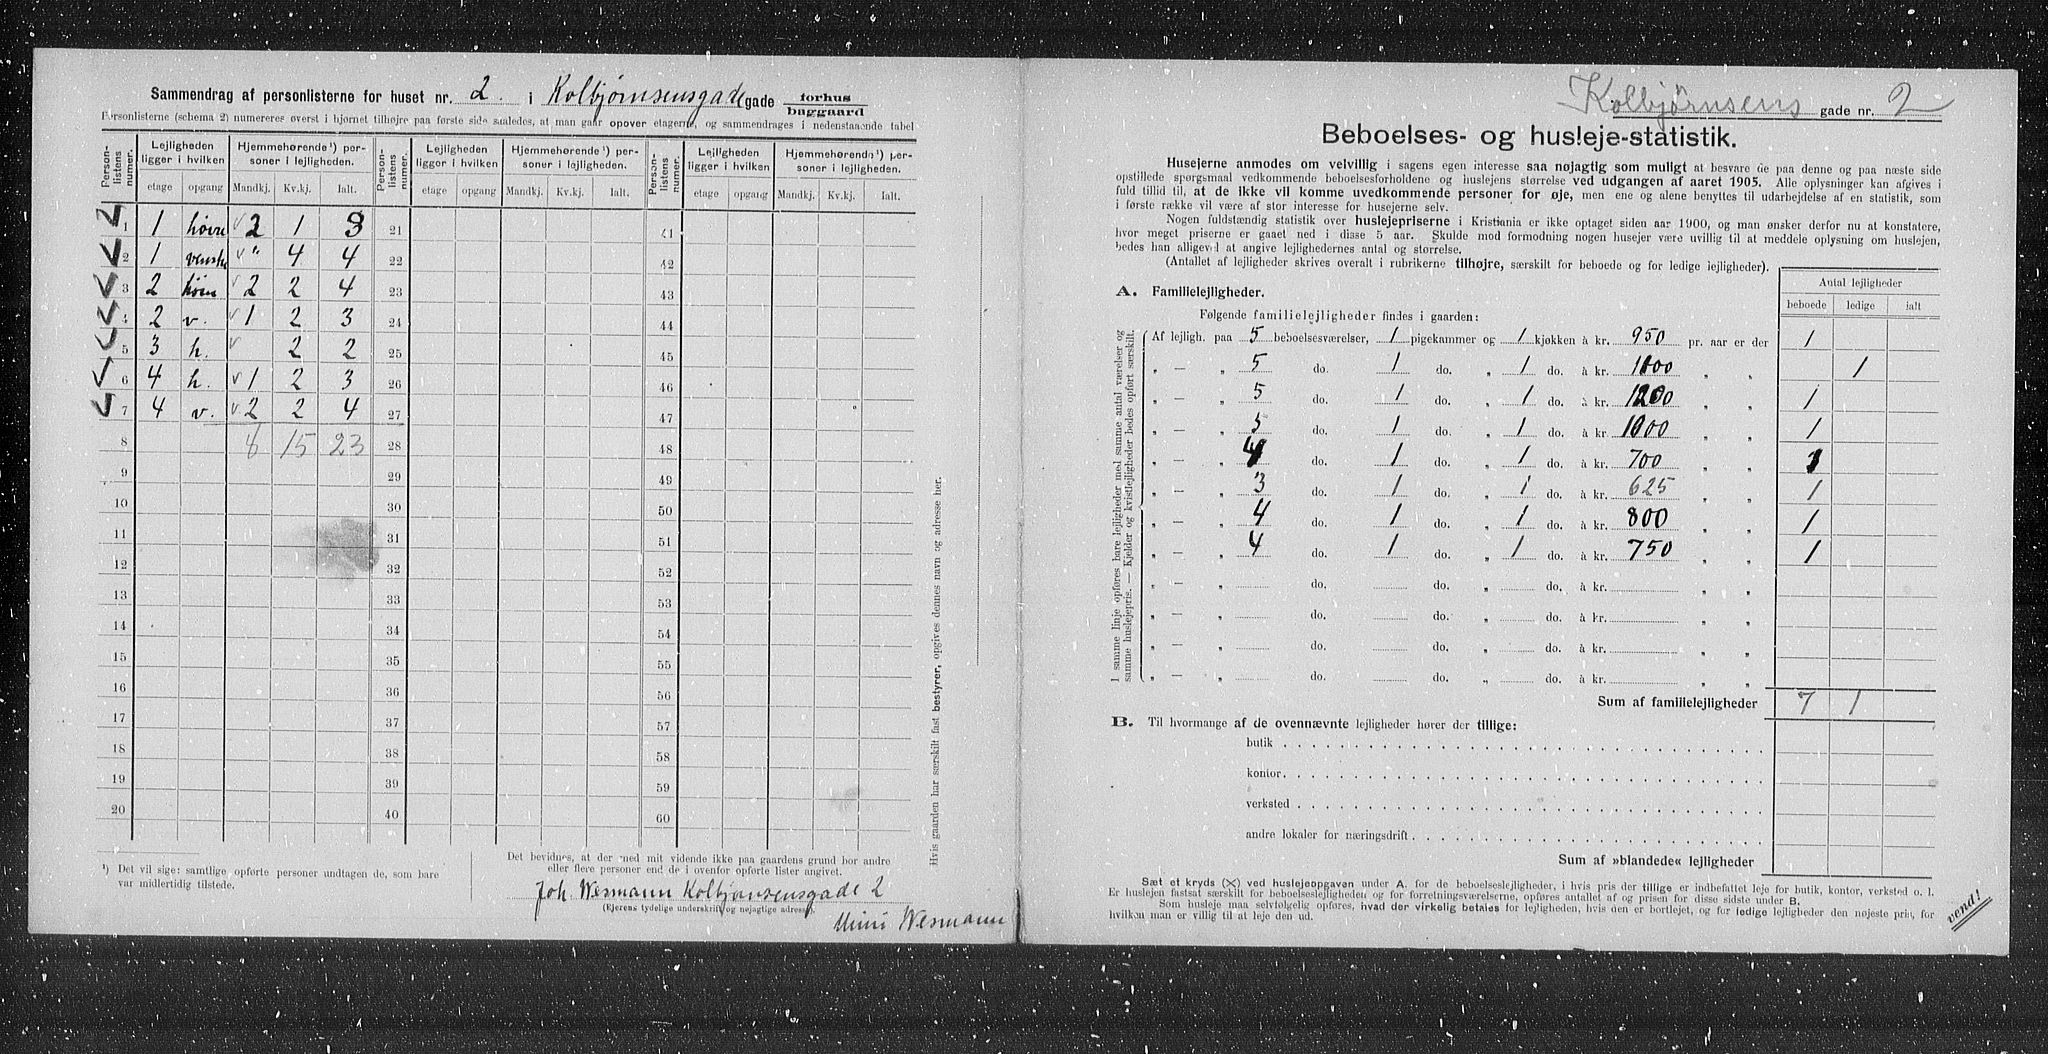 Sammendrag af personlisterne for huset nr. 2 i Kolbjørnsensgade gade forhus baggaard
Personlisterne (schema 2) numereres øverst i hjørnet tilhøjre paa første side saaledes, at man gaar opover etagerne, og sammendrages i nedenstaaende tabel
Personlistens numer. Lejligheden ligger i hvilken etage opgang Hjemmehørende¹) personer i lejligheden. Mandkj. Kv.kj. Ialt. Personlistens numer. Lejligheden ligger i hvilken etage opgang Hjemmehørende¹) personer i lejligheden. Mandkj. Kv.kj. Ialt. Personlistens numer. Lejligheden ligger i hvilken etage opgang Hjemmehørende¹) personer i lejligheden. Mandkj. Kv.kj. Ialt.
1 1 høire 2 1 3 21 41
2 1 venstre " 4 4 22 42
3 2 høire 2 2 4 23 43
4 2 v. 1 2 3 24 44
5 3 h. 2 2 25 45
6 4 h. 1 2 3 26 46
7 4 v. 2 2 4 27 47
8 8 15 23 28 48
9 29 49
10 30 50
11 31 51
12 32 52
13 33 53
14 34 54
15 35 55
16 36 56
17 37 57
18 38 58
19 39 59
20 40 60
¹) Det vil sige: samtlige opførte personer undtagen de, som bare
var midlertidig tilstede.
Det bevidnes, at der med mit vidende ikke paa gaardens grund bor andre
eller flere personer end de i ovenfor opførte lister angivet.
Joh. Wesmann Kolbjønsensgade 2
(Ejerens tydelige underskrift og nøjagtige adresse).
Mimi Wesmann
Hvis gaarden har særskilt fast bestyrer, opgives dennes navn og adresse her.
Kolbjørnsens gade nr. 2
Beboelses- og husleje-statistik.
Husejerne anmodes om velvillig i sagens egen interesse saa nøjagtig som muligt at besvare de paa denne og paa næste side
opstillede spørgsmaal vedkommende beboelsesforholdene og huslejens størrelse ved udgangen af aaret 1905. Alle oplysninger kan afgives i
fuld tillid til, at de ikke vil komme uvedkommende personer for øje, men ene og alene benyttes til udarbejdelse af en statistik, som
i første række vil være af stor interesse for husejerne selv.
Nogen fuldstændig statistik over huslejepriserne i Kristiania er ikke optaget siden aar 1900, og man ønsker derfor nu at konstatere,
hvor meget priserne er gaaet ned i disse 5 aar. Skulde mod formodning nogen husejer være uvillig til at meddele oplysning om huslejen,
bedes han alligevel at angive lejlighedernes antal og størrelse.
(Antallet af lejligheder skrives overalt i rubrikerne tilhøjre, særskilt for beboede og for ledige lejligheder).
Antal lejligheder
beboede ledige ialt
A. Familielejligheder.
Følgende familielejligheder findes i gaarden:
I samme linje opføres bare lejligheder med samme antal værelser og
samme huslejepris. — Kjelder og kvistlejligheder bedes opført særskilt.
Af lejligh. paa 5 beboelsesværelser, 1 pigekammer og 1 kjøkken à kr. 950 pr. aar er der 1
„ — „ 5 do. 1 do. „ 1 do. à kr. 1100 „ „ 1
„ — „ 5 do. 1 do. „ 1 do. à kr. 1200 „ „ 1
„ — „ 5 do. 1 do. „ 1 do. à kr. 1000 „ „ 1
„ — „ 4 do. 1 do. „ 1 do. à kr. 700 „ „ 1
„ — „ 3 do. 1 do. „ 1 do. à kr. 625 „ „ 1
„ — „ 4 do. 1 do. „ 1 do. à kr. 800 „ „ 1
„ — „ 4 do. 1 do. „ 1 do. à kr. 750 „ „ 1
„ — „ do. do. „ do. à kr. „ „
„ — „ do. do. „ do. à kr. „ „
„ — „ do. do. „ do. à kr. „ „
„ — „ do. do. „ do. à kr. „ „
Sum af familielejligheder 7 1
B. Til hvormange af de ovennævnte lejligheder hører der tillige:
butik
kontor
verksted
andre lokaler for næringsdrift
Sum af »blandede« lejligheder
Sæt et kryds (X) ved huslejeopgaven under A. for de beboelseslejligheder, i hvis pris der tillige er indbefattet leje for butik, kontor, verksted o. l.
Er huslejen fastsat særskilt for beboelseslejligheden og for forretningsværelserne, opføres antallet af og prisen for disse sidste under B.
Som husleje maa selvfølgelig opføres, hvad der virkelig betales for lejligheden, hvis den er bortlejet, og for ledige lejligheder den nøjeste pris, for
hvilken man er villig til at leje den ud.
vend!